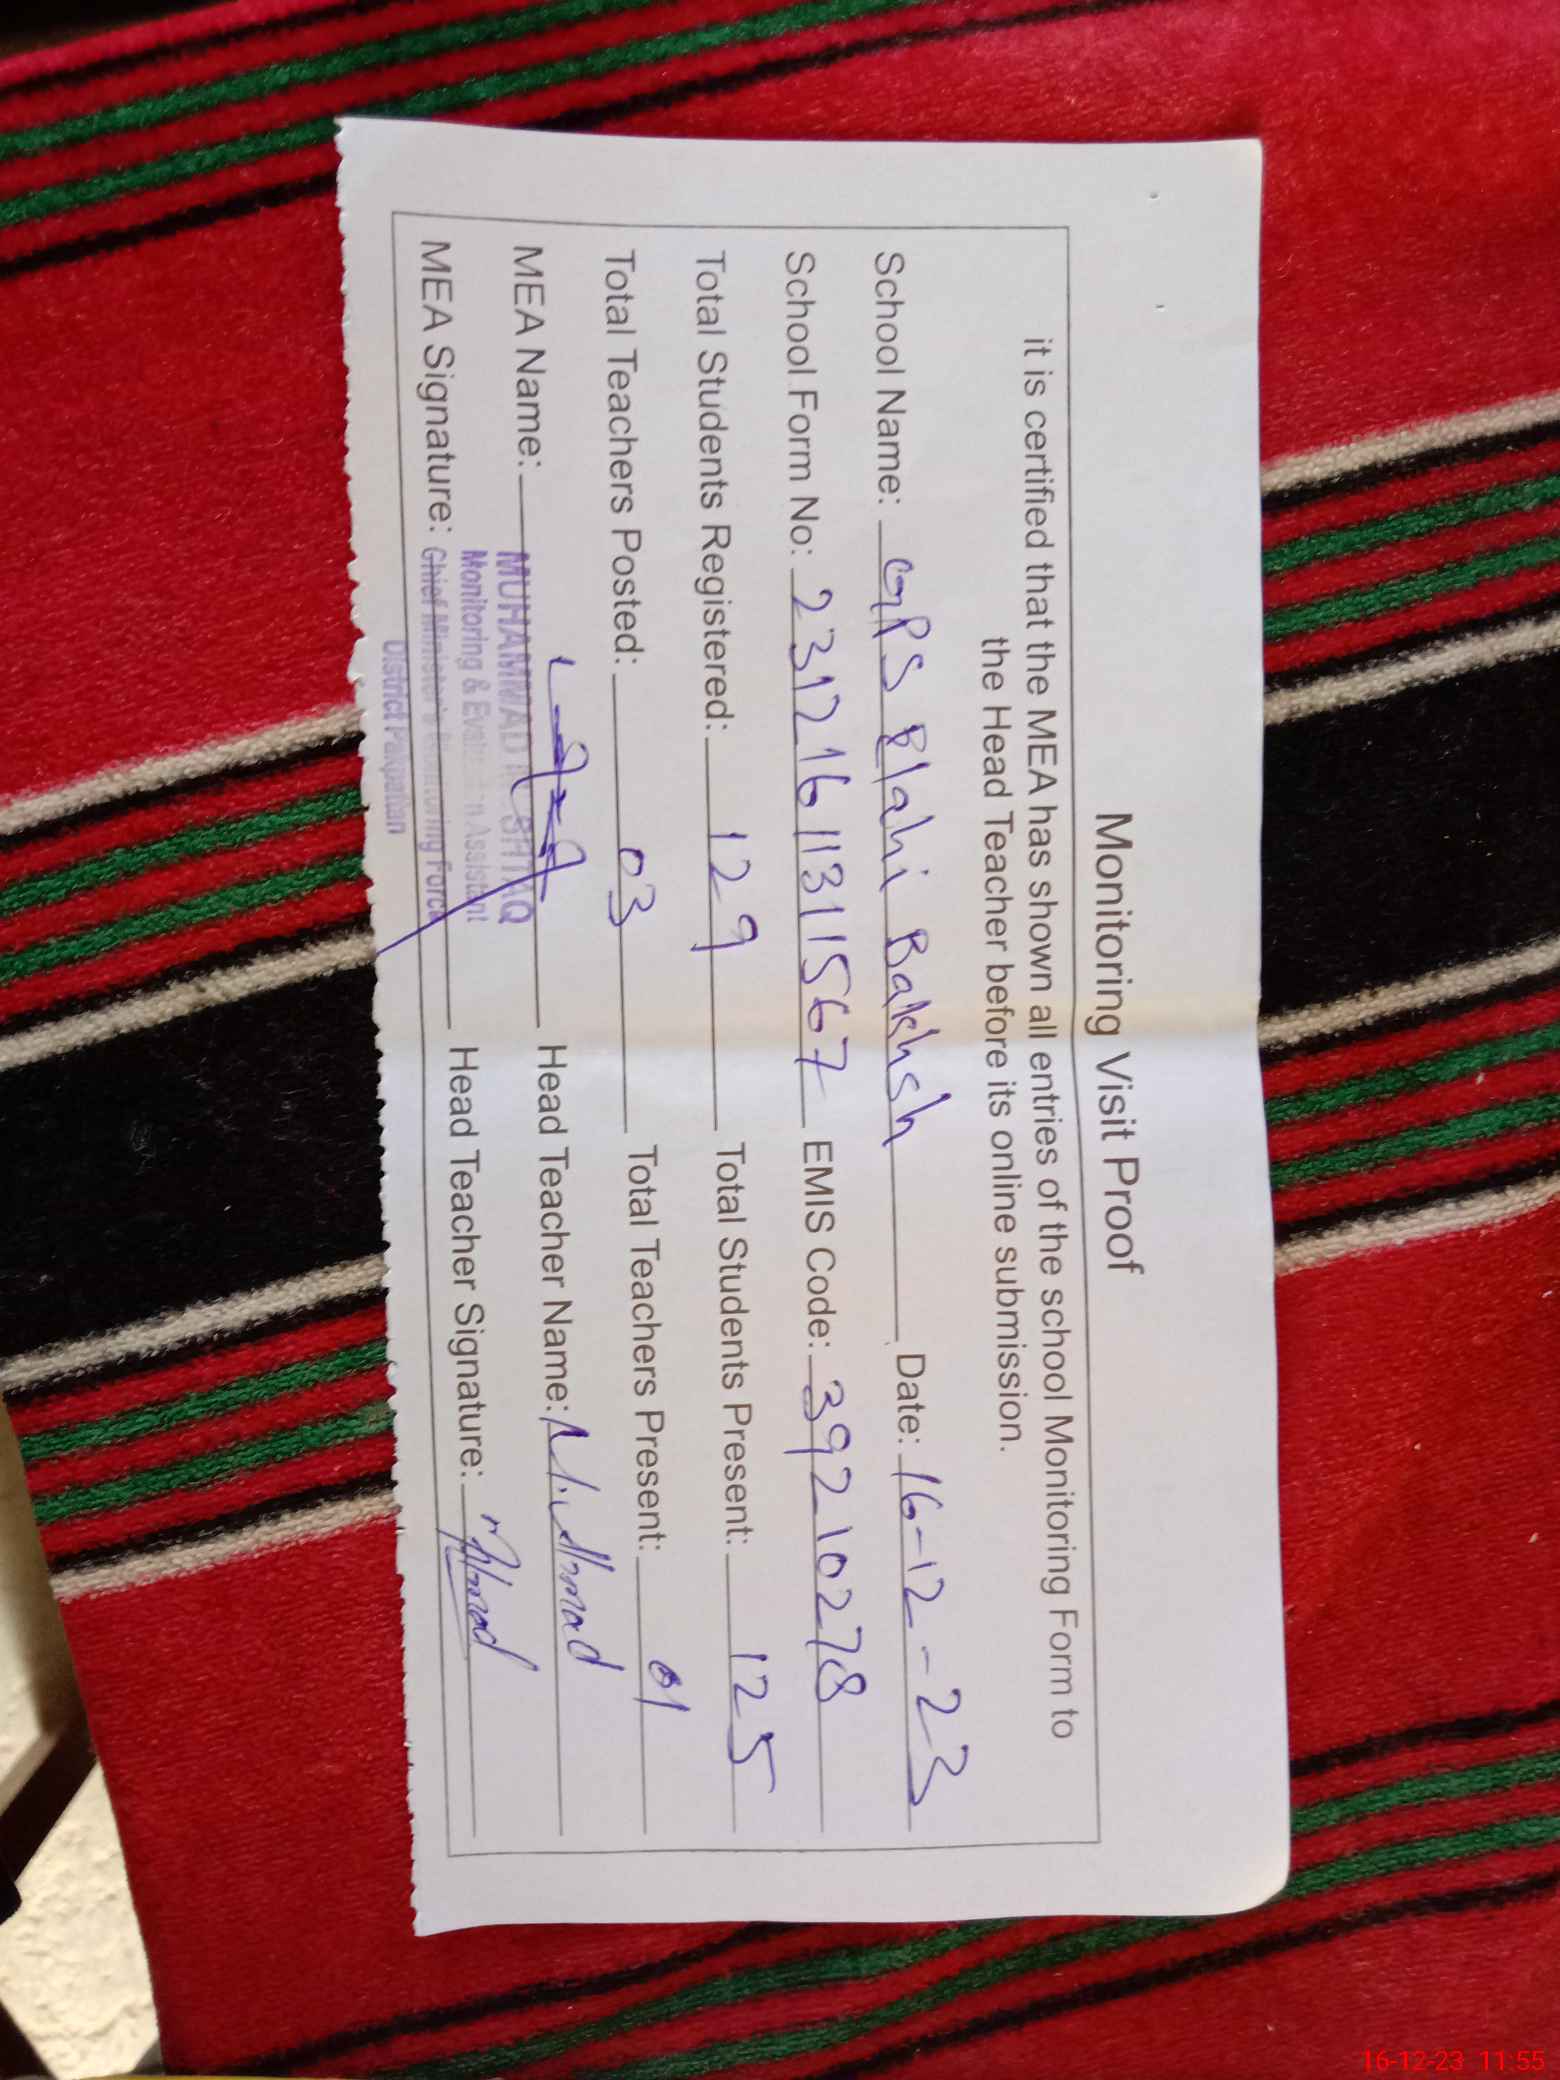 Monitoring Visit Proof
it is certified that the MEA has shown all entries of the school Monitoring Form to
the Head Teacher before its online submission.
School Name: GPS Elahi Bakhsh Date: 16-12-23
School Form No: 23121611311567 EMIS Code: 39210278
Total Students Registered: 129 Total Students Present: 125
Total Teachers Posted: 03 Total Teachers Present: 01
MEA Name: MUHAMMAD Head Teacher Name: Ahmad
Monitoring & Evaluation Assistant
MEA Signature: Chief Minister's Monitoring Force Head Teacher Signature: Ahmad
District Pakpattan
16-12-23 11:55